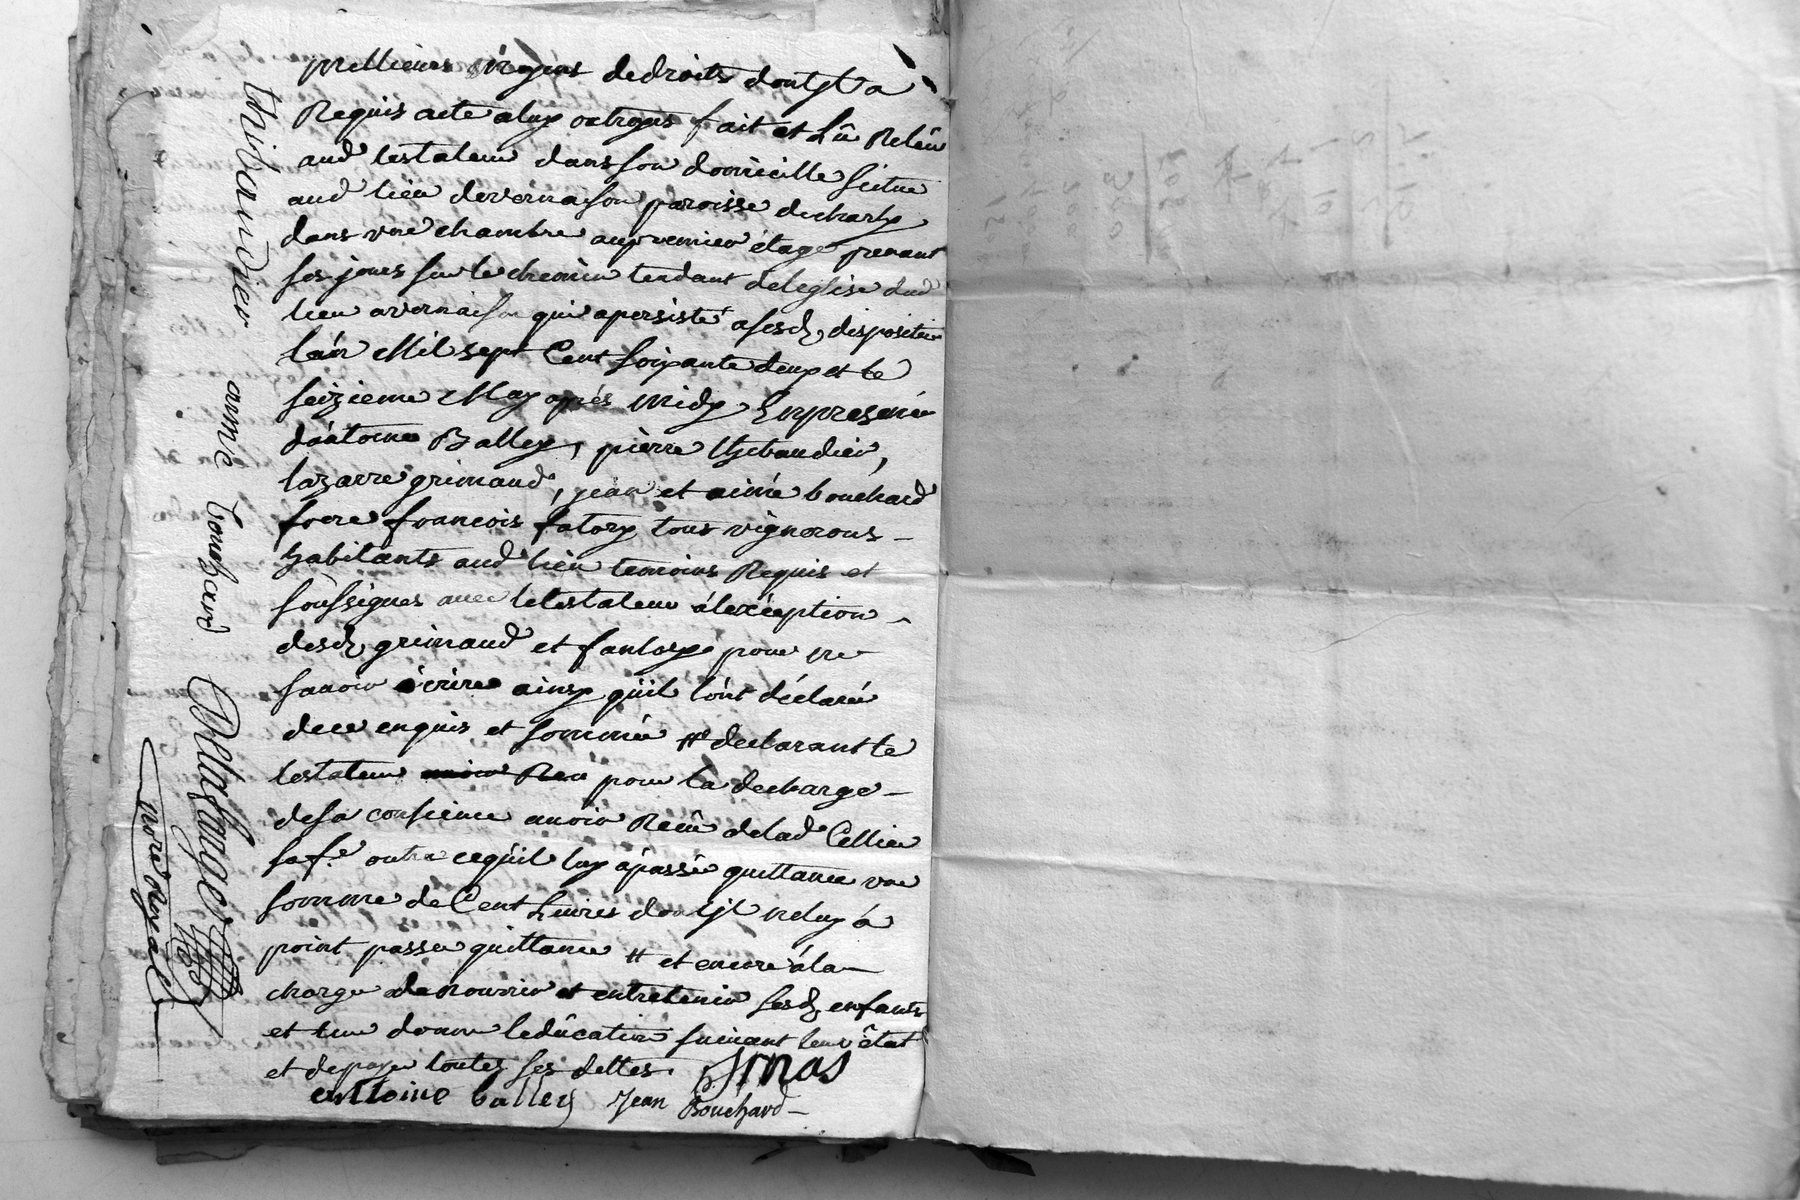 meilleurs moyens de droits dont Jl a
Requis acte a luy octroyés fait et Lû Releu
aud testateur dans son domicille scitue
aud lieu de vernaison paroisse de charly
dans une chambre au premier étage prenant
ses jours sur le chemin tendant de leglise dud
lieu a vernaison qui a persisté a sesd dispositions
lan Mil sept Cent soixante deux et le
seizieme May après midy En presence
dántoine Balley, pierre thibaudier,
lazarre grimaud, jean et aimé bouchard
frere francois fatory tous vignerons
habitants aud lieu temoins Requis et
soussignes avec le testateur á lexception
desd grimaud et fantory pour ne
sauoir écrire ainsy quil lónt déclaré
de ce enquis et sommé # declarant le
testateur pour la decharge
de sa consience auoir Receu de lad Cellier
sa fe outre ce quil luy à passé quittance une
somme de Cent Livres dont Jl ne luy á
point passer quittance # et encore á la
charge de nourrir et entretenir sesd enfants
et leur donner léducation suivant leur état
et de payer toutes ses dettes.
antoine balley Jean Bouchard
thibaudier aimé bouchard
nore Royal